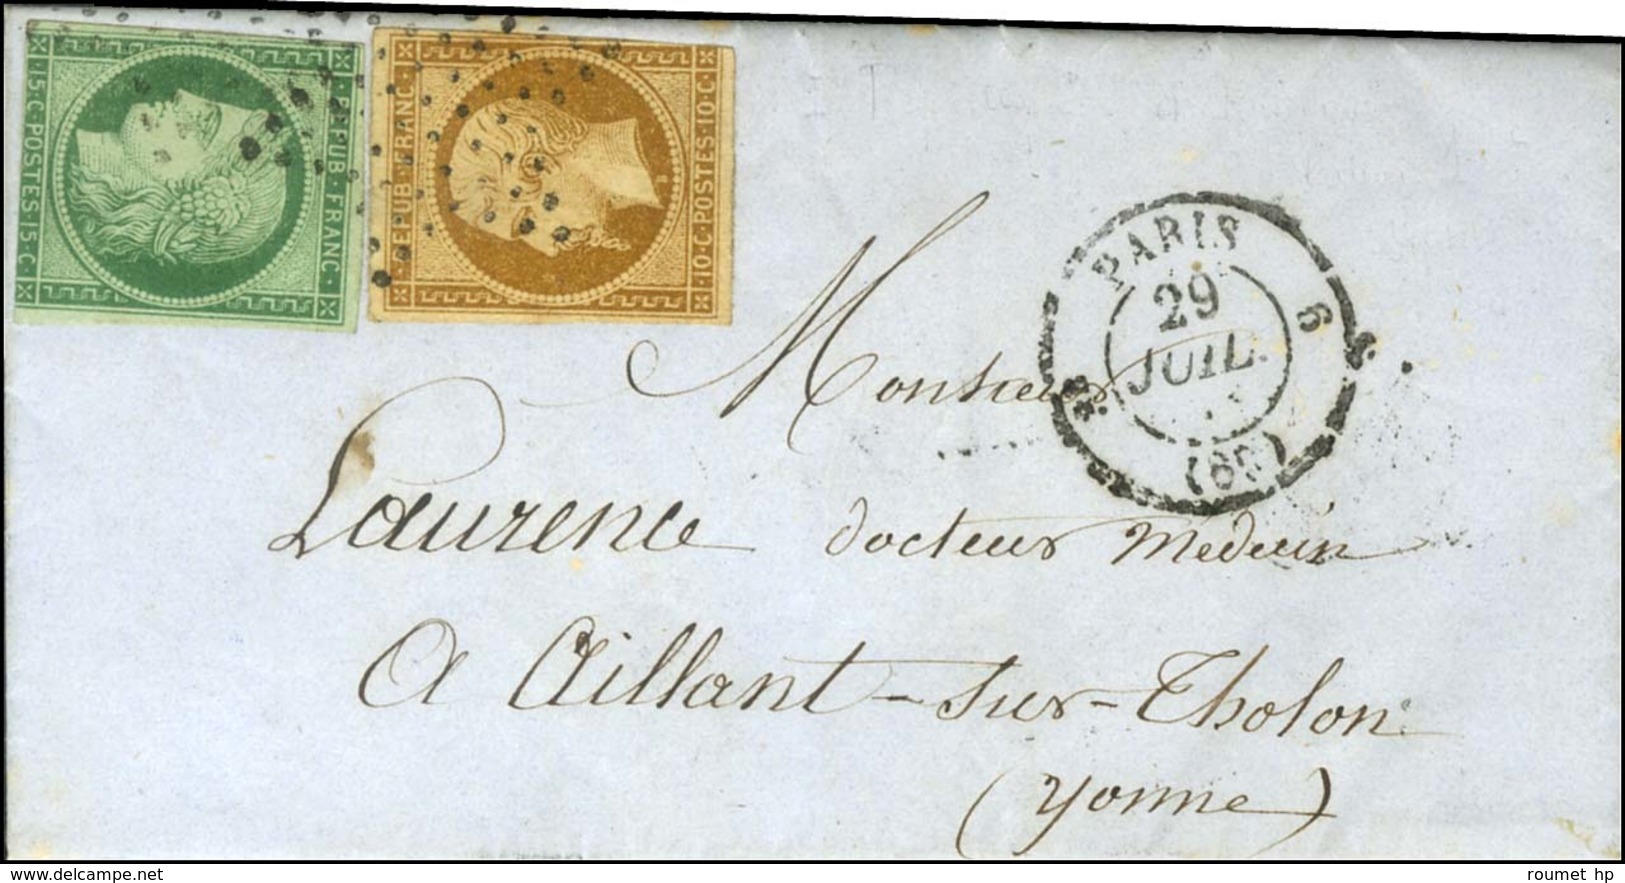 REPUB · FRANC ·
15 · C · POSTES · 15 · C ·
REPUB · FRANC ·
10 · C · POSTES · 10 · C ·
PARIS
6
29
JUIL.
(60)
Monsieur
Laurence docteur Medecin
A Aillant-sur-Tholon
(Yonne)
www.delcampe.net
roumet hp